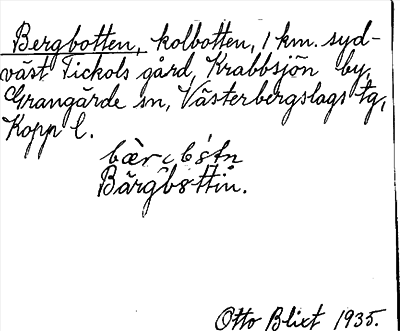 Bergbotten, kolbotten, 1 km. syd-
väst Tickols gård, Krabbsjön by,
Grangärde sn, Västerbergslags tg,
Kopp l.
Bärgbsttin.
Otto Blixt 1935.